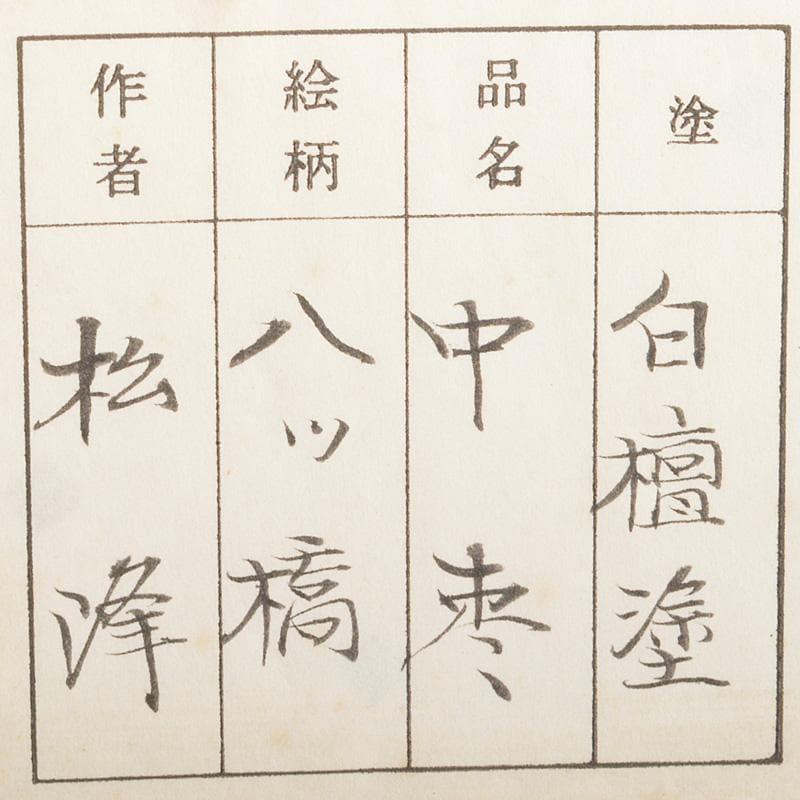 塗
白檀塗
品名
中棗
絵柄
八ッ橋
作者
松峰